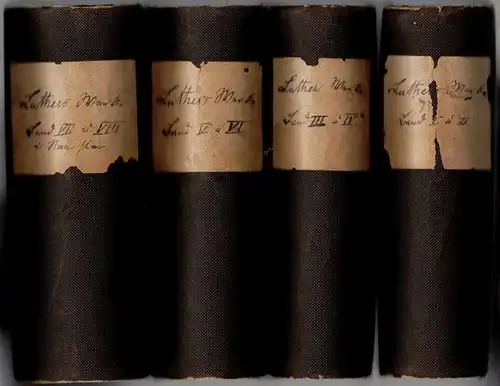 Luthers Werke.
Band VII u VIII
Luthers Werke
Band V u VI
Luthers Werke
Band III u IV
Luthers Werke
Band I u II